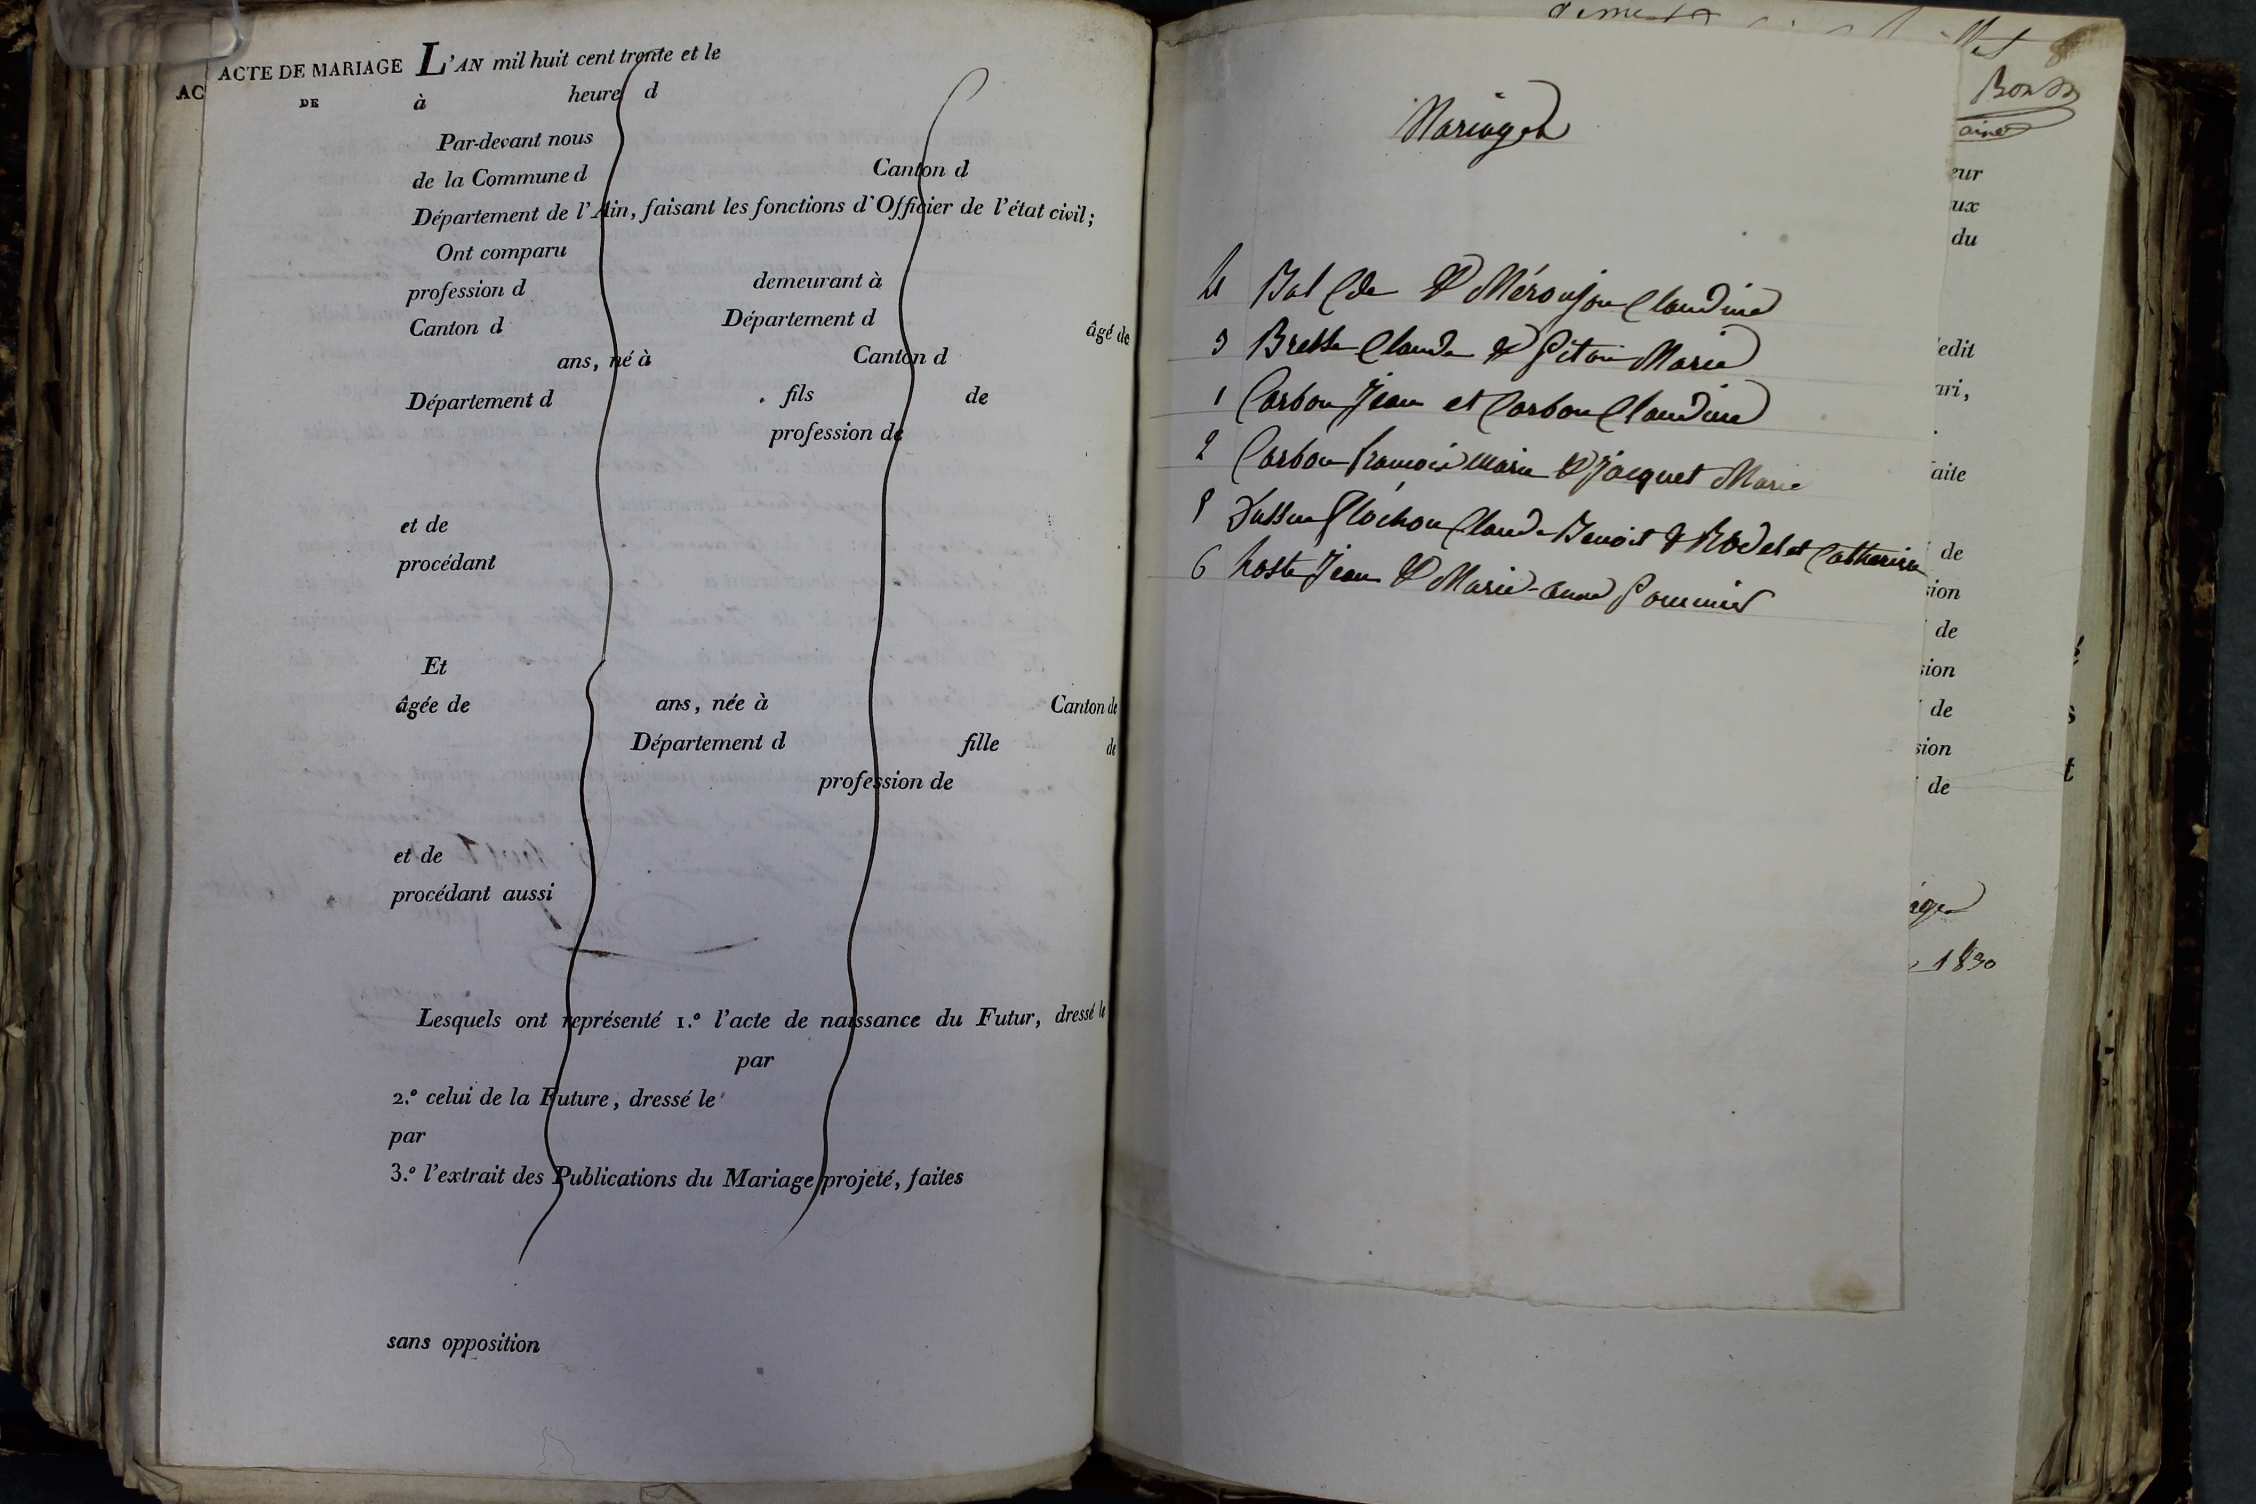 ACTE DE MARIAGE L'AN mil huit cent trente et le
AC
DE à heure d
Par-devant nous
de la Commune d Canton d
Département de l'Ain, faisant les fonctions d'Officier de l'état civil;
Ont comparu
profession d demeurant à
Canton d Département d âgé de
ans, né à Canton d
Département d fils de
profession de
et de
procédant
Et
âgée de ans, née à Canton de
Département d fille de
profession de
et de
procédant aussi
Lesquels ont représenté 1.º l'acte de naissance du Futur, dressé le
par
2.º celui de la Future, dressé le
par
3.º l'extrait des Publications du Mariage projeté, faites
sans opposition
Mariages
4 Bal Cde & Claudine
3 Claude & Marie
1 Carbon Jean et Carbon Claudine
2 Carbon françois marie & Jacquet Marie
5 Claude Benoit & Rodet et Catherine
6 hoste Jean & Marie-anne Pommier
eur
ux
du
ledit
ari,
faite
de
sion
de
sion
de
sion
de
1830